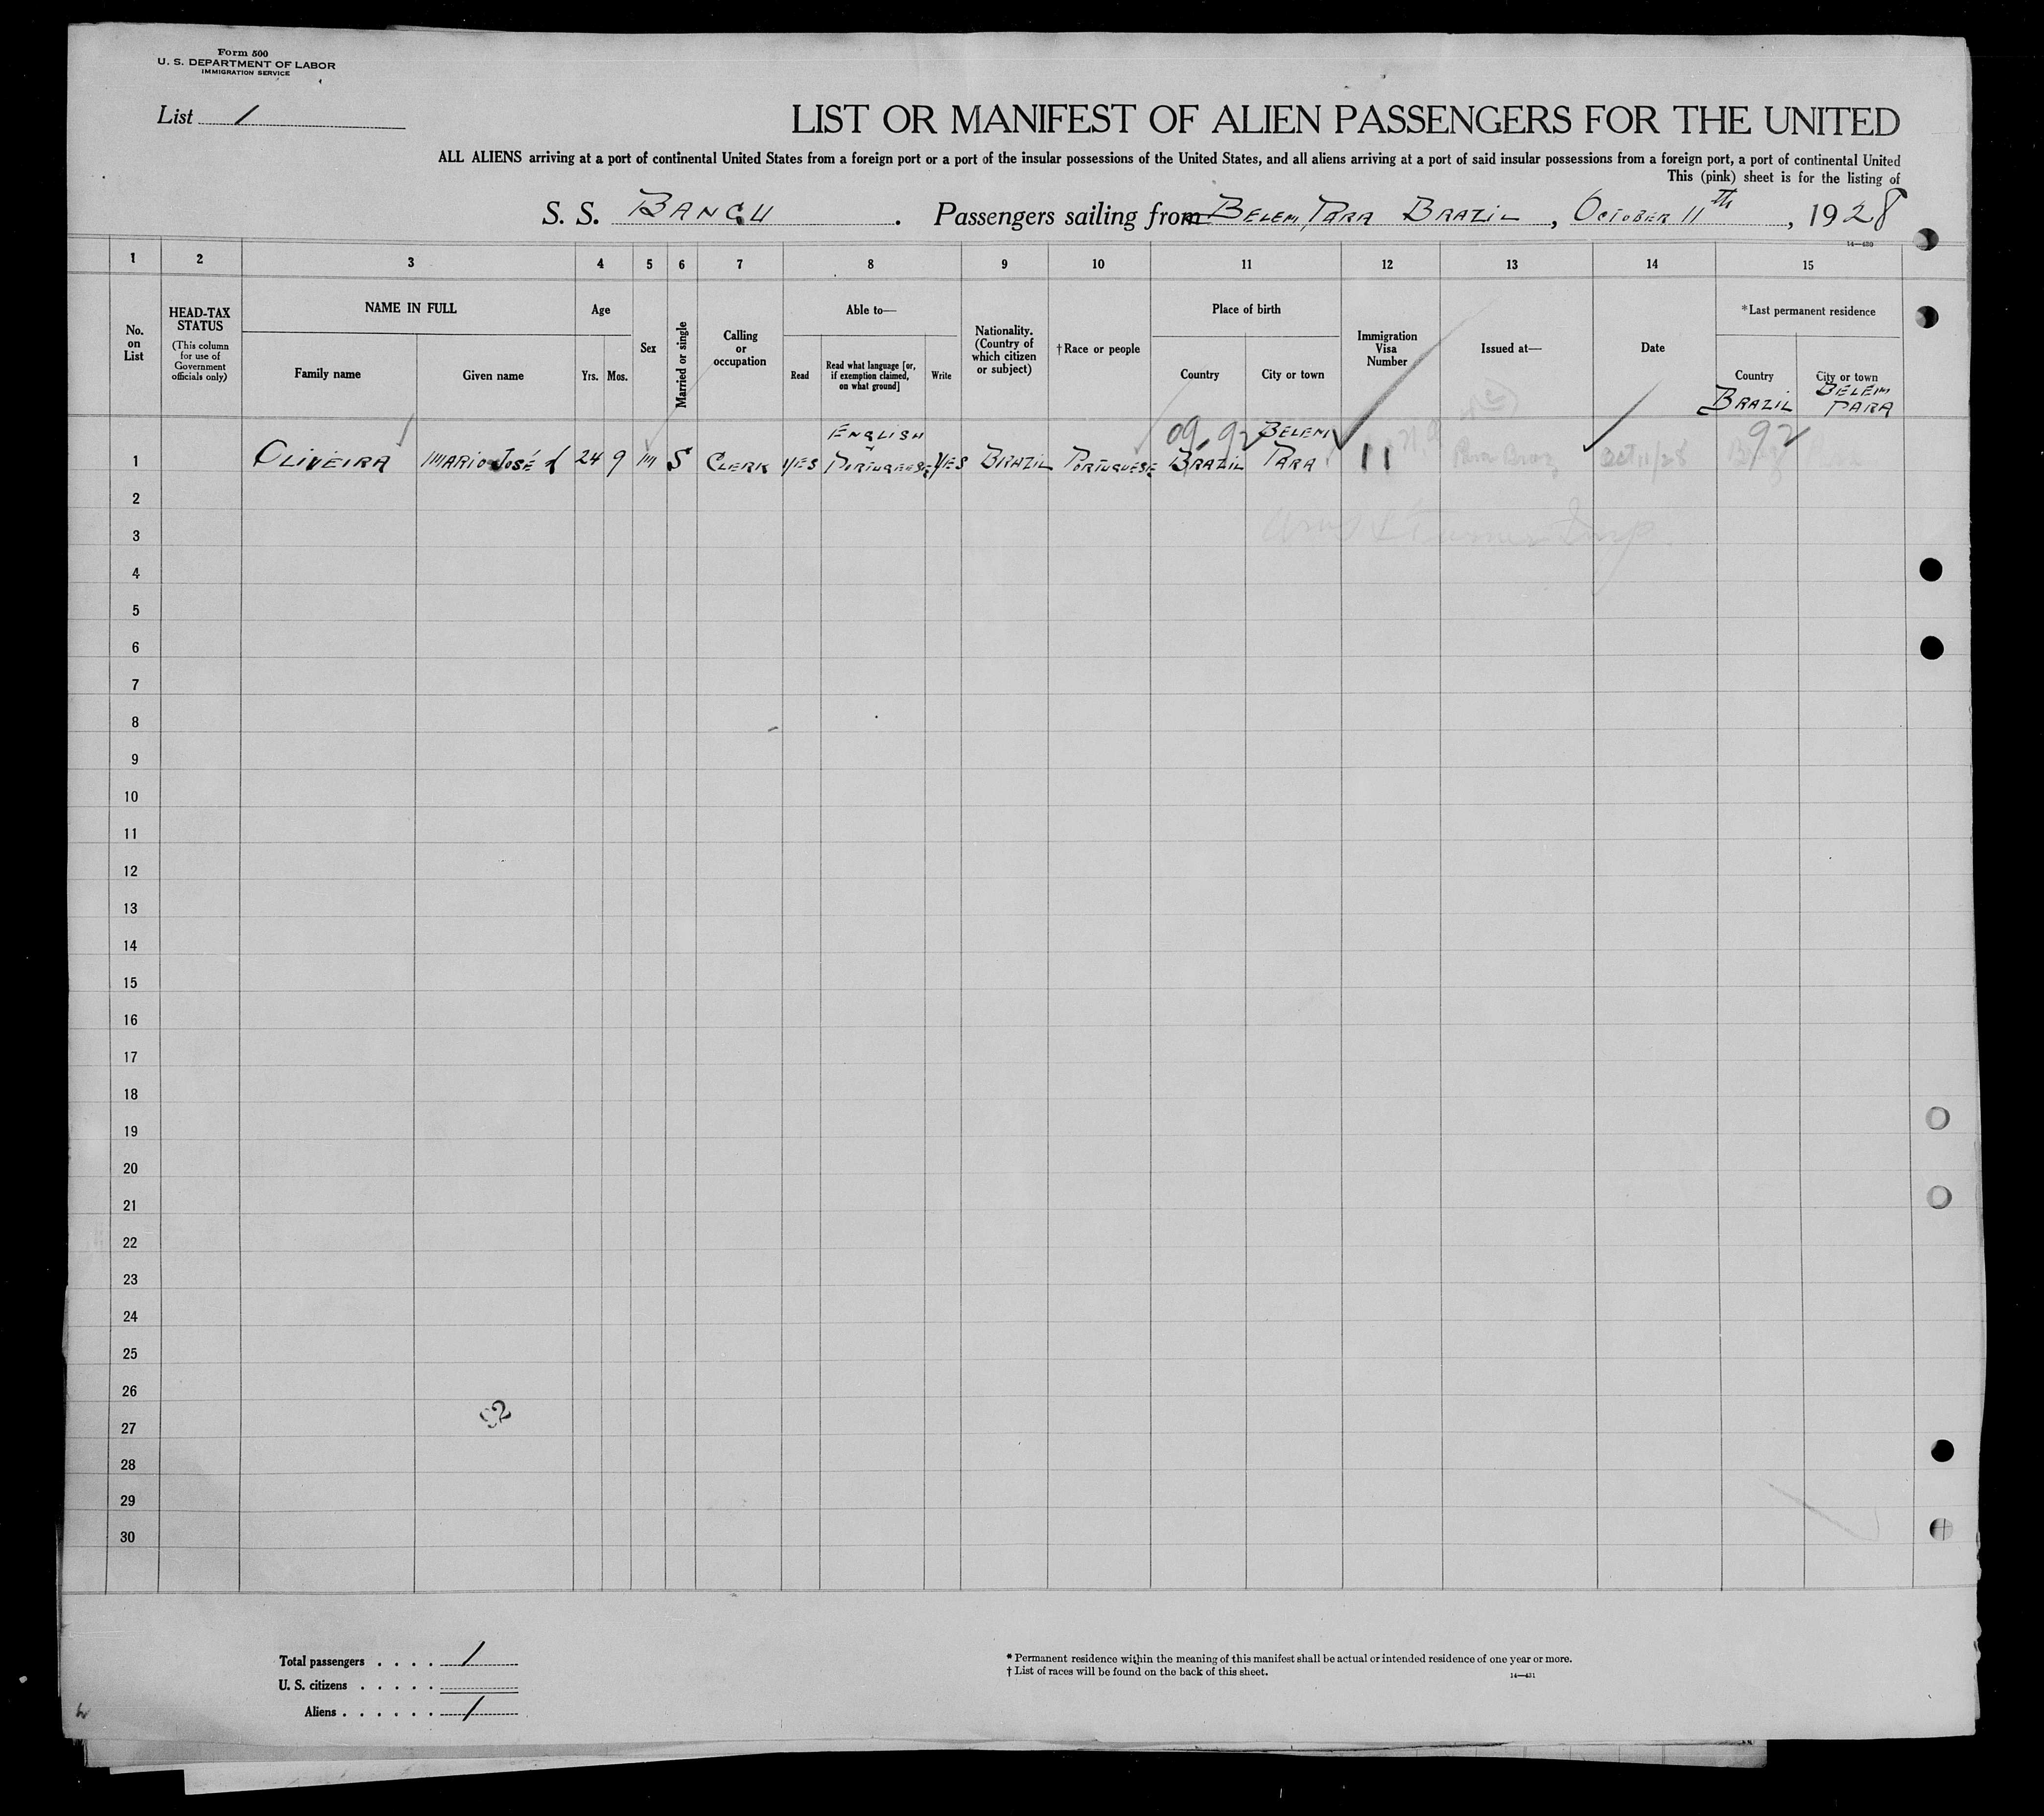 Form 500
U. S. DEPARTMENT OF LABOR
IMMIGRATION SERVICE
List 1
LIST OR MANIFEST OF ALIEN PASSENGERS FOR THE UNITED
ALL ALIENS arriving at a port of continental United States from a foreign port or a port of the insular possessions of the United States, and all aliens arriving at a port of said insular possessions from a foreign port, a port of continental United
This (pink) sheet is for the listing of
S. S. BANGU . Passengers sailing from BELEM, PARA BRAZIL , OCTOBER 11th , 1928
14—430
1 2 3 4 5 6 7 8 9 10 11 12 13 14 15
No. on List
HEAD-TAX STATUS (This column for use of Government officials only)
NAME IN FULL
Family name Given name
Age
Yrs. Mos.
Sex
Married or single
Calling or occupation
Able to—
Read
Read what language [or, if exemption claimed, on what ground]
Write
Nationality. (Country of which citizen or subject)
†Race or people
Place of birth
Country City or town
Immigration Visa Number
Issued at—
Date
*Last permanent residence
Country City or town
BRAZIL BELEM PARA
09, 92
92
ENGLISH BELEM
1 OLIVEIRA MARIO JOSÉ 24 9 M S CLERK YES PORTUGUESE YES BRAZIL PORTUGUESE BRAZIL PARA 11 Oct 11/28
2
3
4
5
6
7
8
9
10
11
12
13
14
15
16
17
18
19
20
21
22
23
24
25
26
27
28
29
30
Total passengers . . . . 1
U. S. citizens . . . . .
Aliens . . . . . . 1
* Permanent residence within the meaning of this manifest shall be actual or intended residence of one year or more.
† List of races will be found on the back of this sheet.
14—431